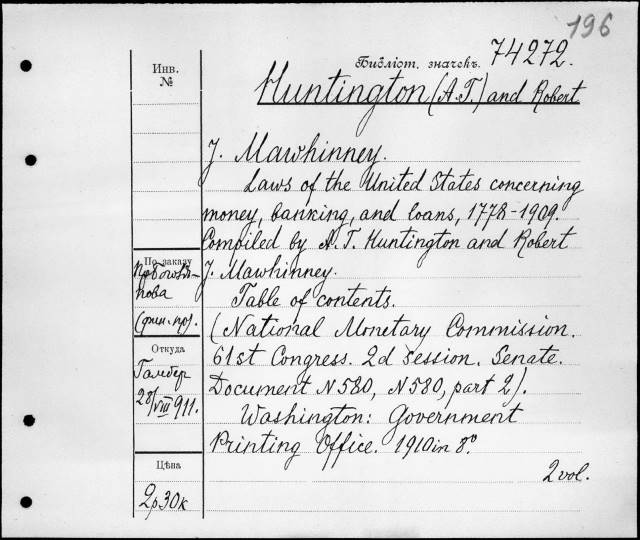 196
Библіот. значекъ. 74272.
Инв.
№
Huntington (A.T.) and Robert
J. Mawhinney.
Laws of the United States concerning
money, banking, and loans, 1778-1909.
Compiled by A. T. Huntington and Robert
J. Mawhinney.
Table of contents.
(National Monetary Commission.
61st Congress. 2d session. Senate.
Document N 580, N 580, part 2).
Washington: Government
Printing Office. 1910 in 8.º
2 vol.
По заказу
нова
(фин. пр).
Откуда
28/VIII 911.
Цѣна
2р 30к